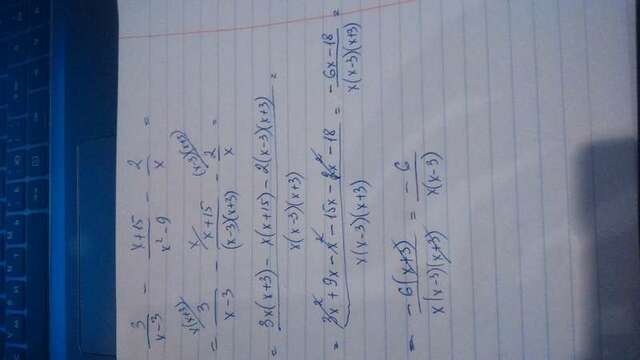 3/(x-3) - (x+15)/(x²-9) - 2/x =
= 3/(x-3) - (x+15)/((x-3)(x+3)) - 2/x =
= (3x(x+3) - x(x+15) - 2(x-3)(x+3))/(x(x-3)(x+3)) =
= (3x² + 9x - x² - 15x - 2x² - 18)/(x(x-3)(x+3)) = (-6x-18)/(x(x-3)(x+3)) =
= -6(x+3)/(x(x-3)(x+3)) = -6/(x(x-3))